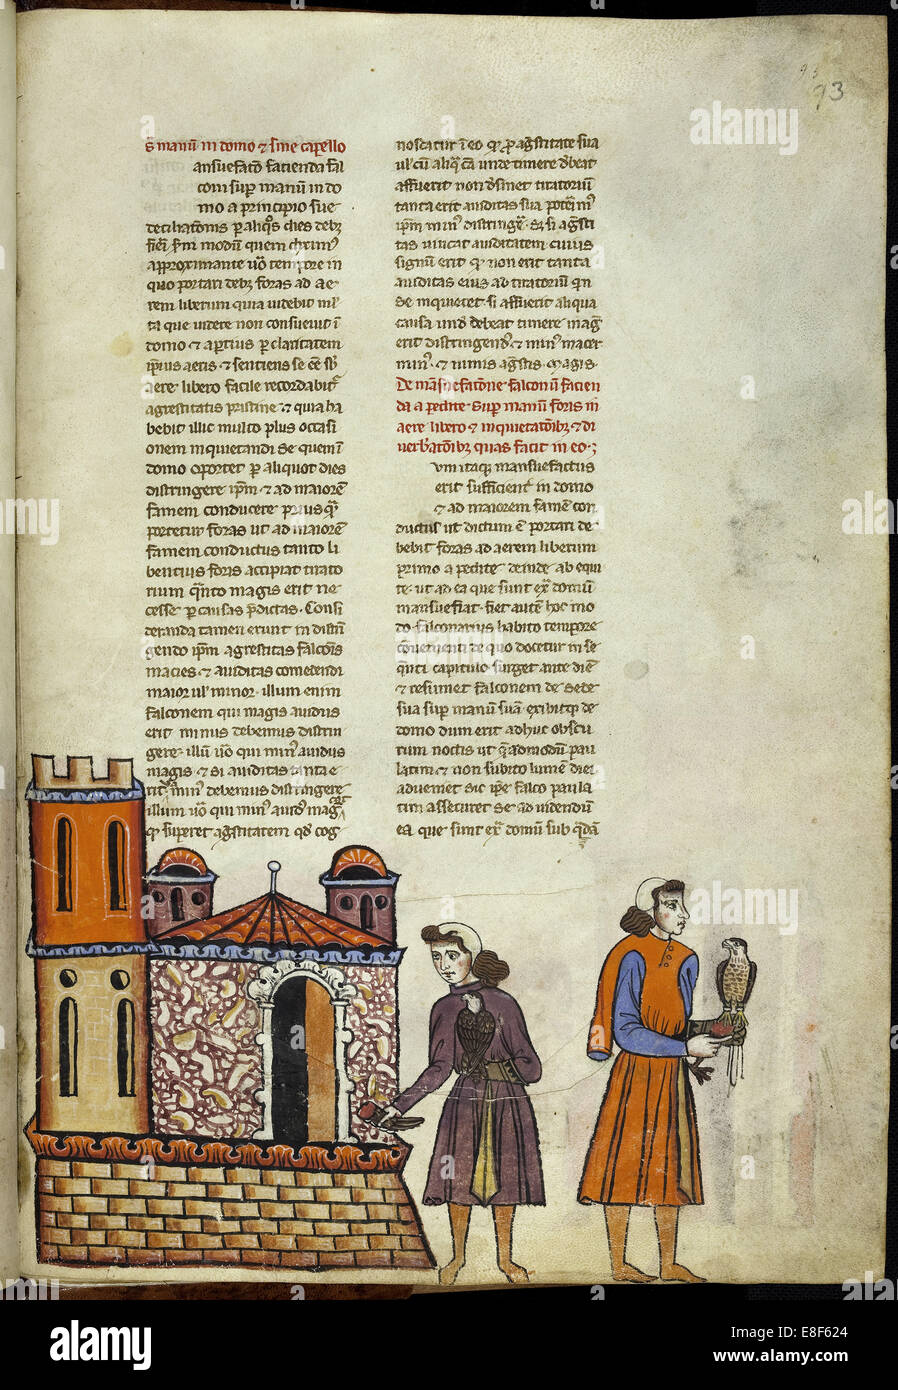 93
93
sup manum in domo et sine capello
ansuefacto facienda fal
coni sup manum in do
mo a principio sue
deciliatonis p aliqos dies debz
fieri scdm modum quem diximus
approximante uo tempore in
quo portari debz foras ad ae
rem liberum quia uidebit ml
ta que uidere non consueuit i
domo et apertius p claritatem
ipsius aeris et sentiens se ee sb
aere libero facile recordabitr
agrestitatis pristine et quia ha
bebit illic multo plus occasi
onem inquietandi se quem i
domo oportet p aliquot dies
distringere ipm et ad maiore
famem conducere prius qm
portetur foras ut ad maiore
famem conductus tanto li
bentius foris accipiat tirato
rium qnto magis erit ne
cesse p causas pdictas. Consi
deranda tamen erunt in distri
gendo ipm agrestitas falcois
macies et auiditas comedendi
maior ul minor. illum enim
falconem qui magis auidus
erit minus debemus distrin
gere. illu uo qui min auidus
magis. et si auiditas tanta e
rit min debemus distringere
illum uo qui min auid mag
qd superet agstitatem qd cog
noscatur i eo qd p agstitate sua
ul cu aliqa ca unde timere debeat
affuerit non desinet tiratorium
tanta erit auiditas sua potim
ipm min distringe. Sz si agsti
tas uincat auiditatem cuius
signum erit qd non erit tanta
auiditas eius ad tiratorium qn
se inquietet si affuerit aliqua
causa und debeat timere mag
erit distringend et min macer
min et nimis agstis magis.
De mansuefactione falconum facien
da a pedite sup manum foris in
aere libero et inquietatoibz et di
uerbatoibz quas facit in eo
um itaque mansuefactus
erit sufficient in domo
et ad maiorem famem con
ductus ut dictum e portari de
bebit foras ad aerem liberum
primo a pedite deinde ab equi
te. ut ad ea que sunt ex domum
mansuefiat. fiet autem hoc mo
do. falconarius habito tempore
conuenienti de quo docetur in se
qnti capitulo surget ante diem
et resumet falconem de sede
sua sup manum suam exibitqe de
domo dum erit adhuc obscu
rum noctis ut qadmodum pau
latim et non subito lumen diei
adueniet sic ipse falco paula
tim assecuret se ad uidendum
ea que sunt ex domum sub qdam
alamy
alamy stock photo
E8F624
www.alamy.com